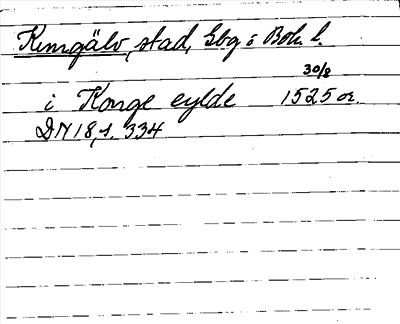 Kungälv, stad, Gbg o Boh. l.
30/8
i Konge eylde 1525 or.
DN 18, s. 334